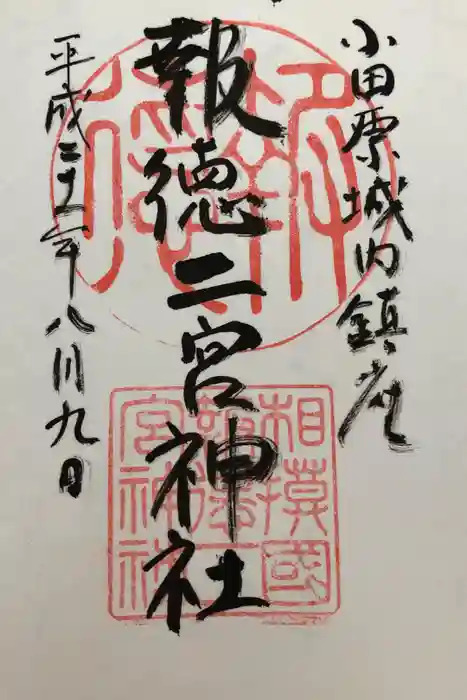 小田原城内鎮座
報徳二宮神社
平成二十一年八月九日
相模國
報徳二
宮神社